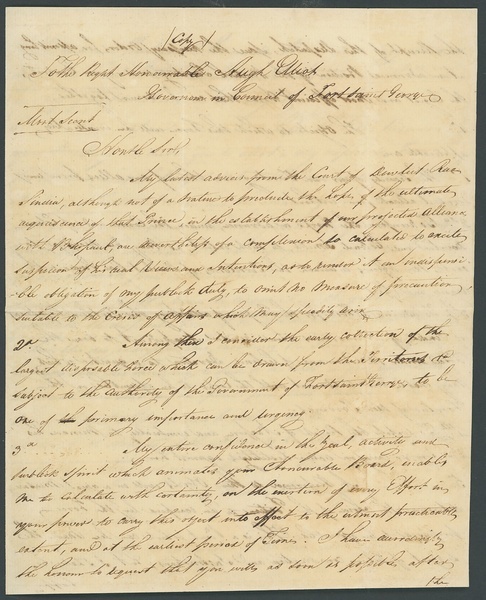 (Copy)
To the Right Honourable Hugh Elliot
Governor in Council of Fort Saint George
Most Secret
Honble Sir,
My latest advices from the Court of Dowlut Rao
Sindia, although not of a nature to preclude the hope of the ultimate
acquiescence of that Prince, in the establishment of our projected Alliance
with Bhopaul, are nevertheless of a complexion so calculated to excite
suspicion of his real Views and Intentions, as to render it an indispensi-
ble obligation of my publick duty, to omit no measure of precaution
suitable to the Crisis of affairs which may speedily arise
2d Among these I consider the early collection of the
largest disposable Force which can be drawn from the Territories
subject to the Authority of the Government of Fort Saint George, to be
one of the primary importance and urgency
3d My entire confidence in the Zeal, activity and
publick spirit which animates your Honourable Board, enables
me to calculate with certainty, on the exertion of every Effort in
your power to carry this object into effect to the utmost practicable
extent, and at the earliest period of Time. I have accordingly
the honour to request that you will as soon as possible after
the